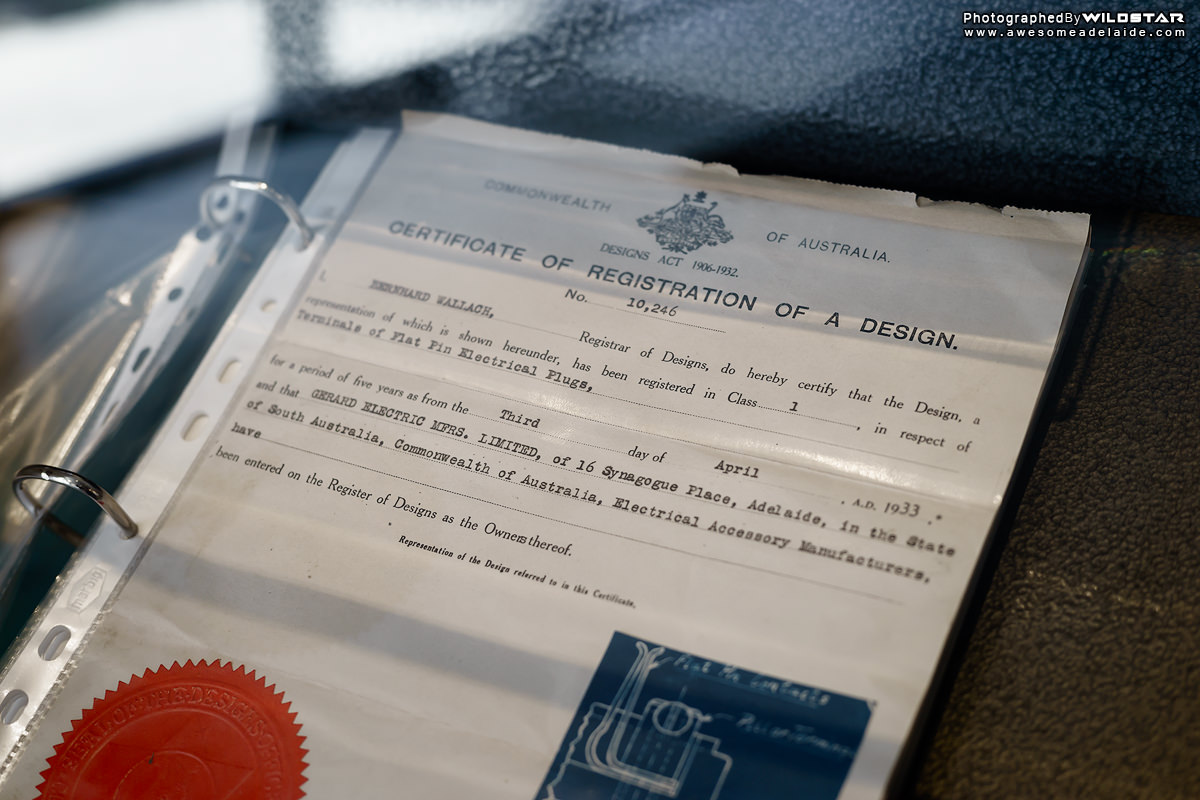 PhotographedBy WILDSTAR
www.awesomeadelaide.com
COMMONWEALTH OF AUSTRALIA.
DESIGNS ACT 1906-1932.
CERTIFICATE OF REGISTRATION OF A DESIGN.
No. 10,246
I, BERNHARD WALLACH, Registrar of Designs, do hereby certify that the Design, a
representation of which is shown hereunder, has been registered in Class 1, in respect of
Terminals of Flat Pin Electrical Plugs,
for a period of five years as from the Third day of April, A.D. 1933.
and that GERARD ELECTRIC MFRS. LIMITED, of 16 Synagogue Place, Adelaide, in the State
of South Australia, Commonwealth of Australia, Electrical Accessory Manufacturers,
have
been entered on the Register of Designs as the Owners thereof.
Representation of the Design referred to in this Certificate.
marbig